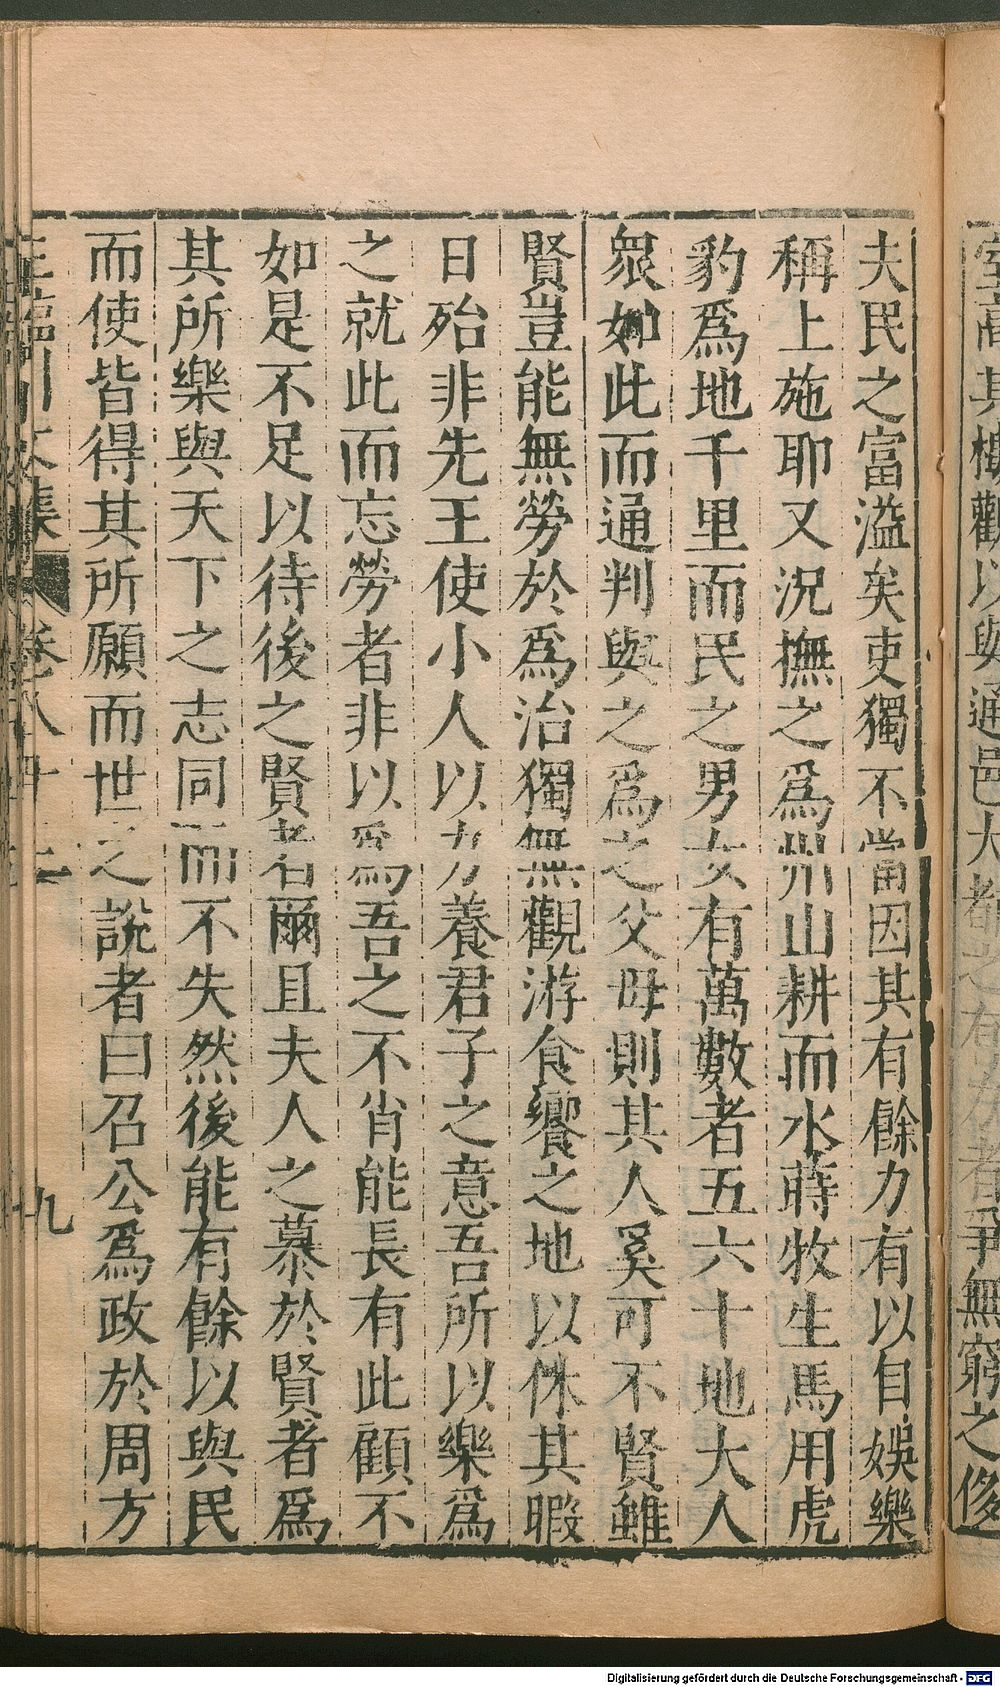 室高其樓觀以與通邑大都之有力者爭無窮之侈
夫民之富溢矣吏獨不當因其有餘力有以自娛樂
稱上施耶又況撫之爲州山耕而水蒔牧生馬用虎
豹爲地千里而民之男女有萬數者五六十地大人
衆如此而通判與之爲之父母則其人奚可不賢雖
賢豈能無勞於爲治獨無觀游食饗之地以休其暇
日殆非先王使小人以力養君子之意吾所以樂爲
之就此而忘勞者非以爲吾之不肖能長有此顧不
如是不足以待後之賢者爾且夫人之慕於賢者爲
其所樂與天下之志同而不失然後能有餘以與民
而使皆得其所願而世之說者曰召公爲政於周方
王臨川文集 卷八十三 九
Digitalisierung gefördert durch die Deutsche Forschungsgemeinschaft - DFG